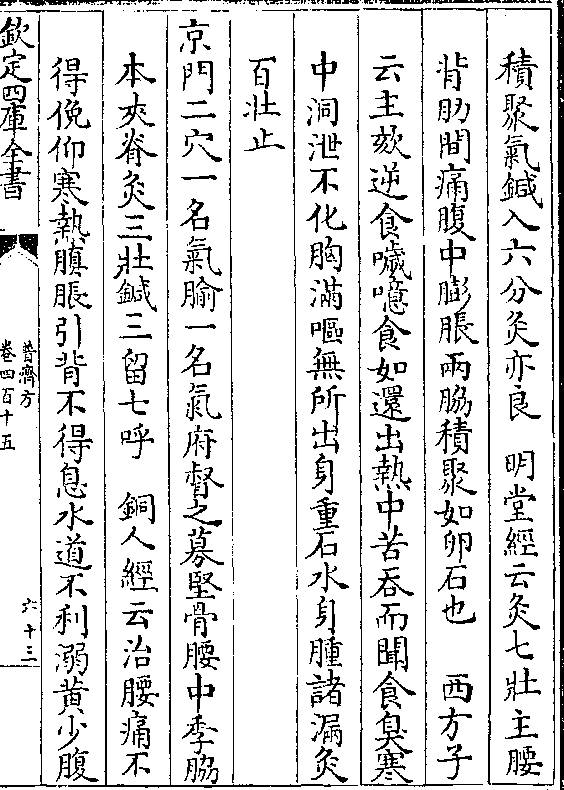 積聚氣鍼入六分灸亦良　明堂經云灸七壯主腰
背肋間痛腹中膨脹兩脇積聚如卵石也　西方子
云主欬逆食噦噫食如還出熱中苦吞而聞食臭寒
中洞泄不化胸滿嘔無所出身重石水身腫諸漏灸
百壯止
京門二穴一名氣腧一名氣府督之募堅骨腰中季脇
本夾脊灸三壯鍼三留七呼　銅人經云治腰痛不
得俛仰寒熱䐜脹引背不得息水道不利溺黄少腹
欽定四庫全書
普濟方
卷四百十五
六十三